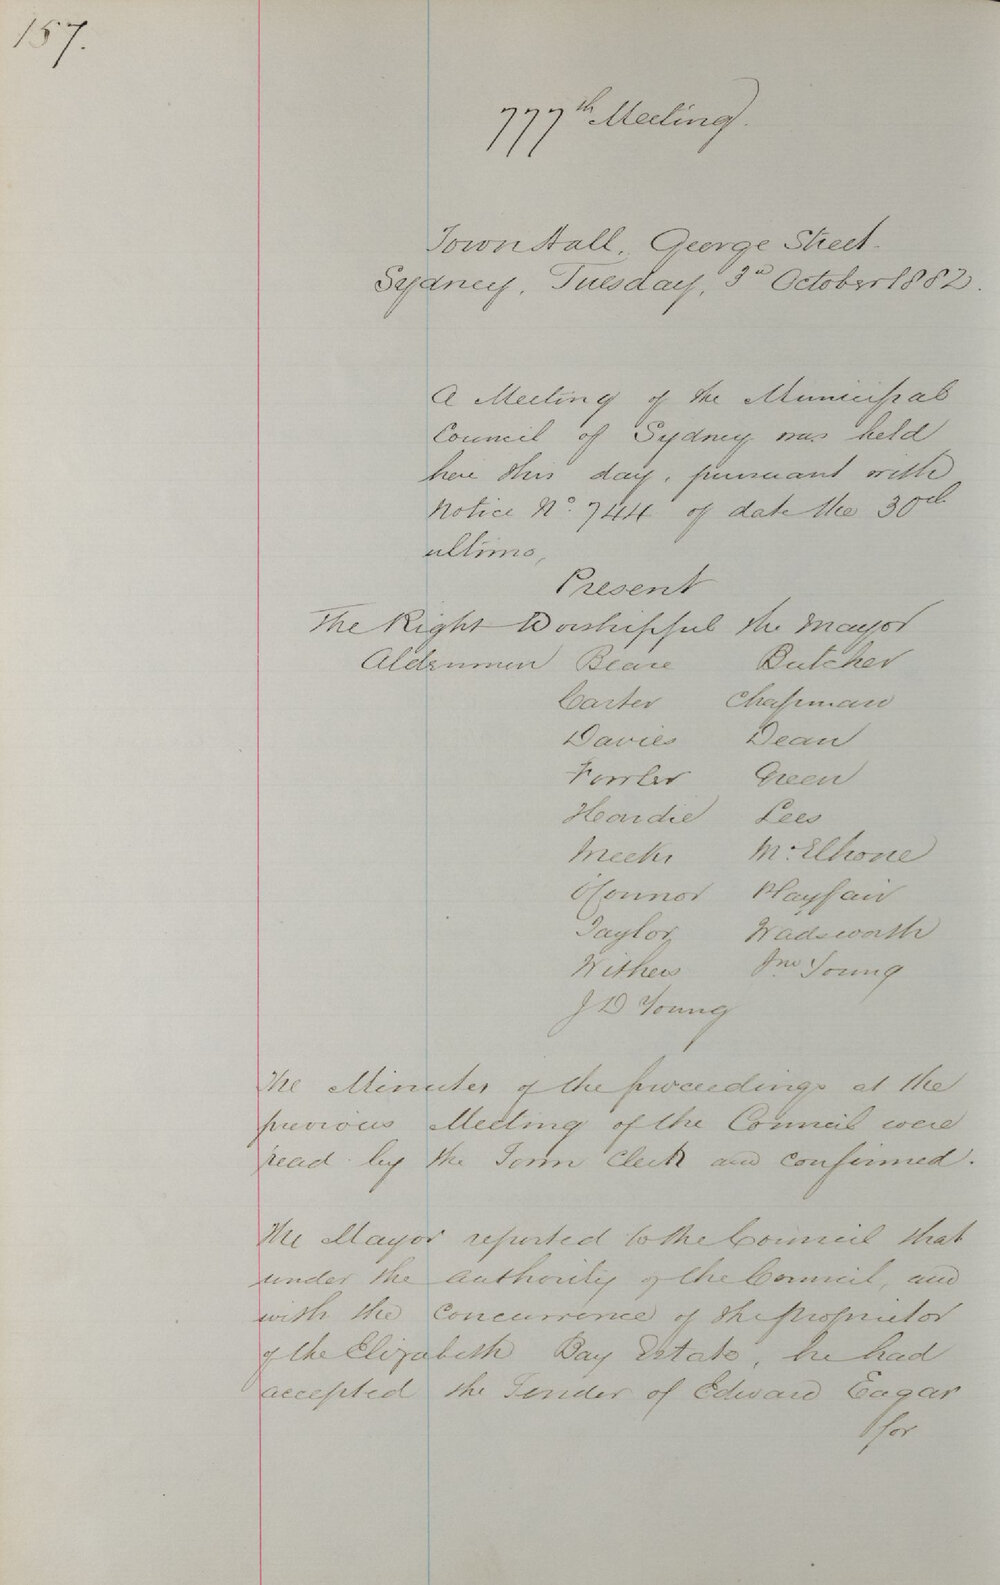 157.
777th Meeting.
Town Hall, George Street.
Sydney, Tuesday, 3rd October 1882.
A Meeting of the Municipal
Council of Sydney was held
here this day, pursuant with
Notice No. 744 of date the 30th
ultimo,
Present
The Right Worshipful the Mayor
Aldermen Beare Butcher
Carter Chapman
Davies Dean
Fowler Green
Hardie Lees
Meeks McElhone
O'Connor Playfair
Taylor Wadsworth
Withers Jno Young
J D Young
The Minutes of the proceedings at the
previous Meeting of the Council were
read by the Town Clerk and confirmed.
The Mayor reported to the Council that
under the authority of the Council, and
with the concurrence of the proprietor
of the Elizabeth Bay Estate, he had
accepted the Tender of Edward Eagar
for